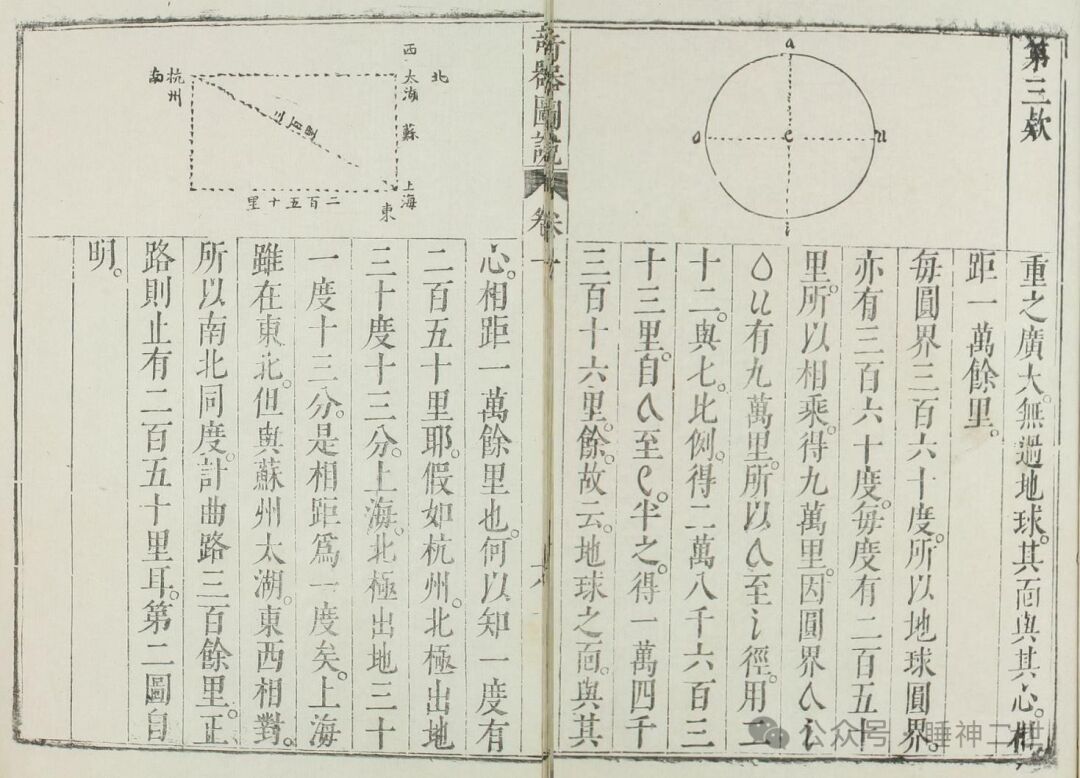 第三款
a
o e u
i
重之廣大。無過地球。其靣與其心。相
距一萬餘里。
每圓界三百六十度。所以地球圓界。
亦有三百六十度。每度有二百五十
里。所以相乘。得九萬里。因圓界a i
o u有九萬里。所以a至i徑。用二
十二。與七。比例。得二萬八千六百三
十三里。自a至e。半之。得一萬四千
三百十六里。餘。故云。地球之靣。與其
奇器圖說 卷
北
西 太湖 蘇 上海
東
二百五十里
杭州
南
心。相距一萬餘里也。何以知一度有
二百五十里耶。假如杭州。北極出地
三十度十三分。上海。北極出地三十
一度十三分。是相距爲一度矣。上海
雖在東北。但與蘇州太湖。東西相對。
所以南北同度。計曲路三百餘里。正
路則止有二百五十里耳。第二圖自
明。
公众号·睡神二世